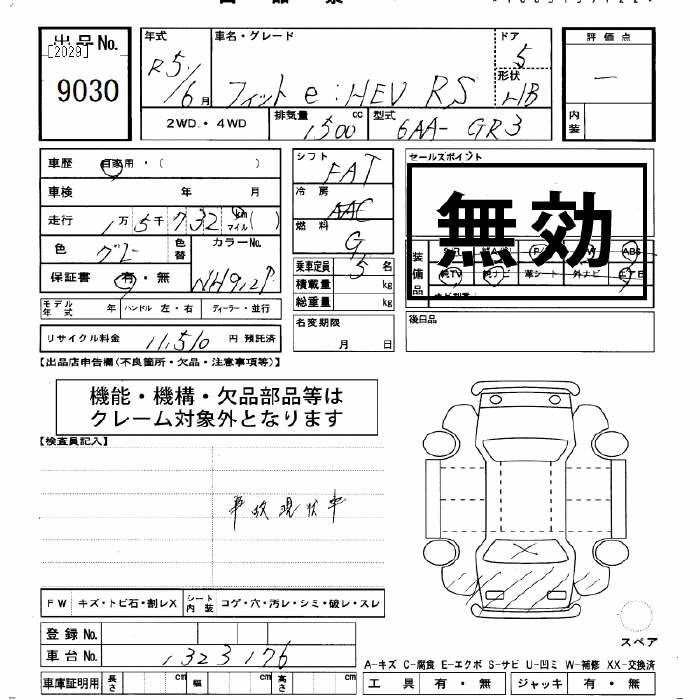 出品No.
[2029]
9030
年式
R5/6月
車名・グレード
フィット e:HEV RS
ドア
5
形状
HB
評価点
—
内装
2WD・4WD
排気量 1500 cc
型式 6AA- GR3
車歴 自家用・( )
車検 年 月
走行 1万5千732 km マイル( )
色 グレー
色替
カラーNo.
保証書 有・無
シフト FAT
冷房 AAC
燃料 G
乗車定員 5 名
積載量 kg
総重量 kg
セールスポイント
無効
装備品
純TV 純ナビ 革シート 外ナビ
モデル年式 年 ハンドル 左・右 ディーラー・並行
リサイクル料金 11,510 円 預託済
名変期限
月 日
後日品
【出品店申告欄(不良箇所・欠品・注意事項等)】
機能・機構・欠品部品等は
クレーム対象外となります
【検査員記入】
事故現状車
FW キズ・トビ石・割レX シート内装 コゲ・穴・汚レ・シミ・破レ・スレ
登録No.
車台No. 1323176
車庫証明用 長さ cm 幅 cm 高さ cm
スペア
A-キズ C-腐食 E-エクボ S-サビ U-凹ミ W-補修 XX-交換済
工具 有・無 ジャッキ 有・無